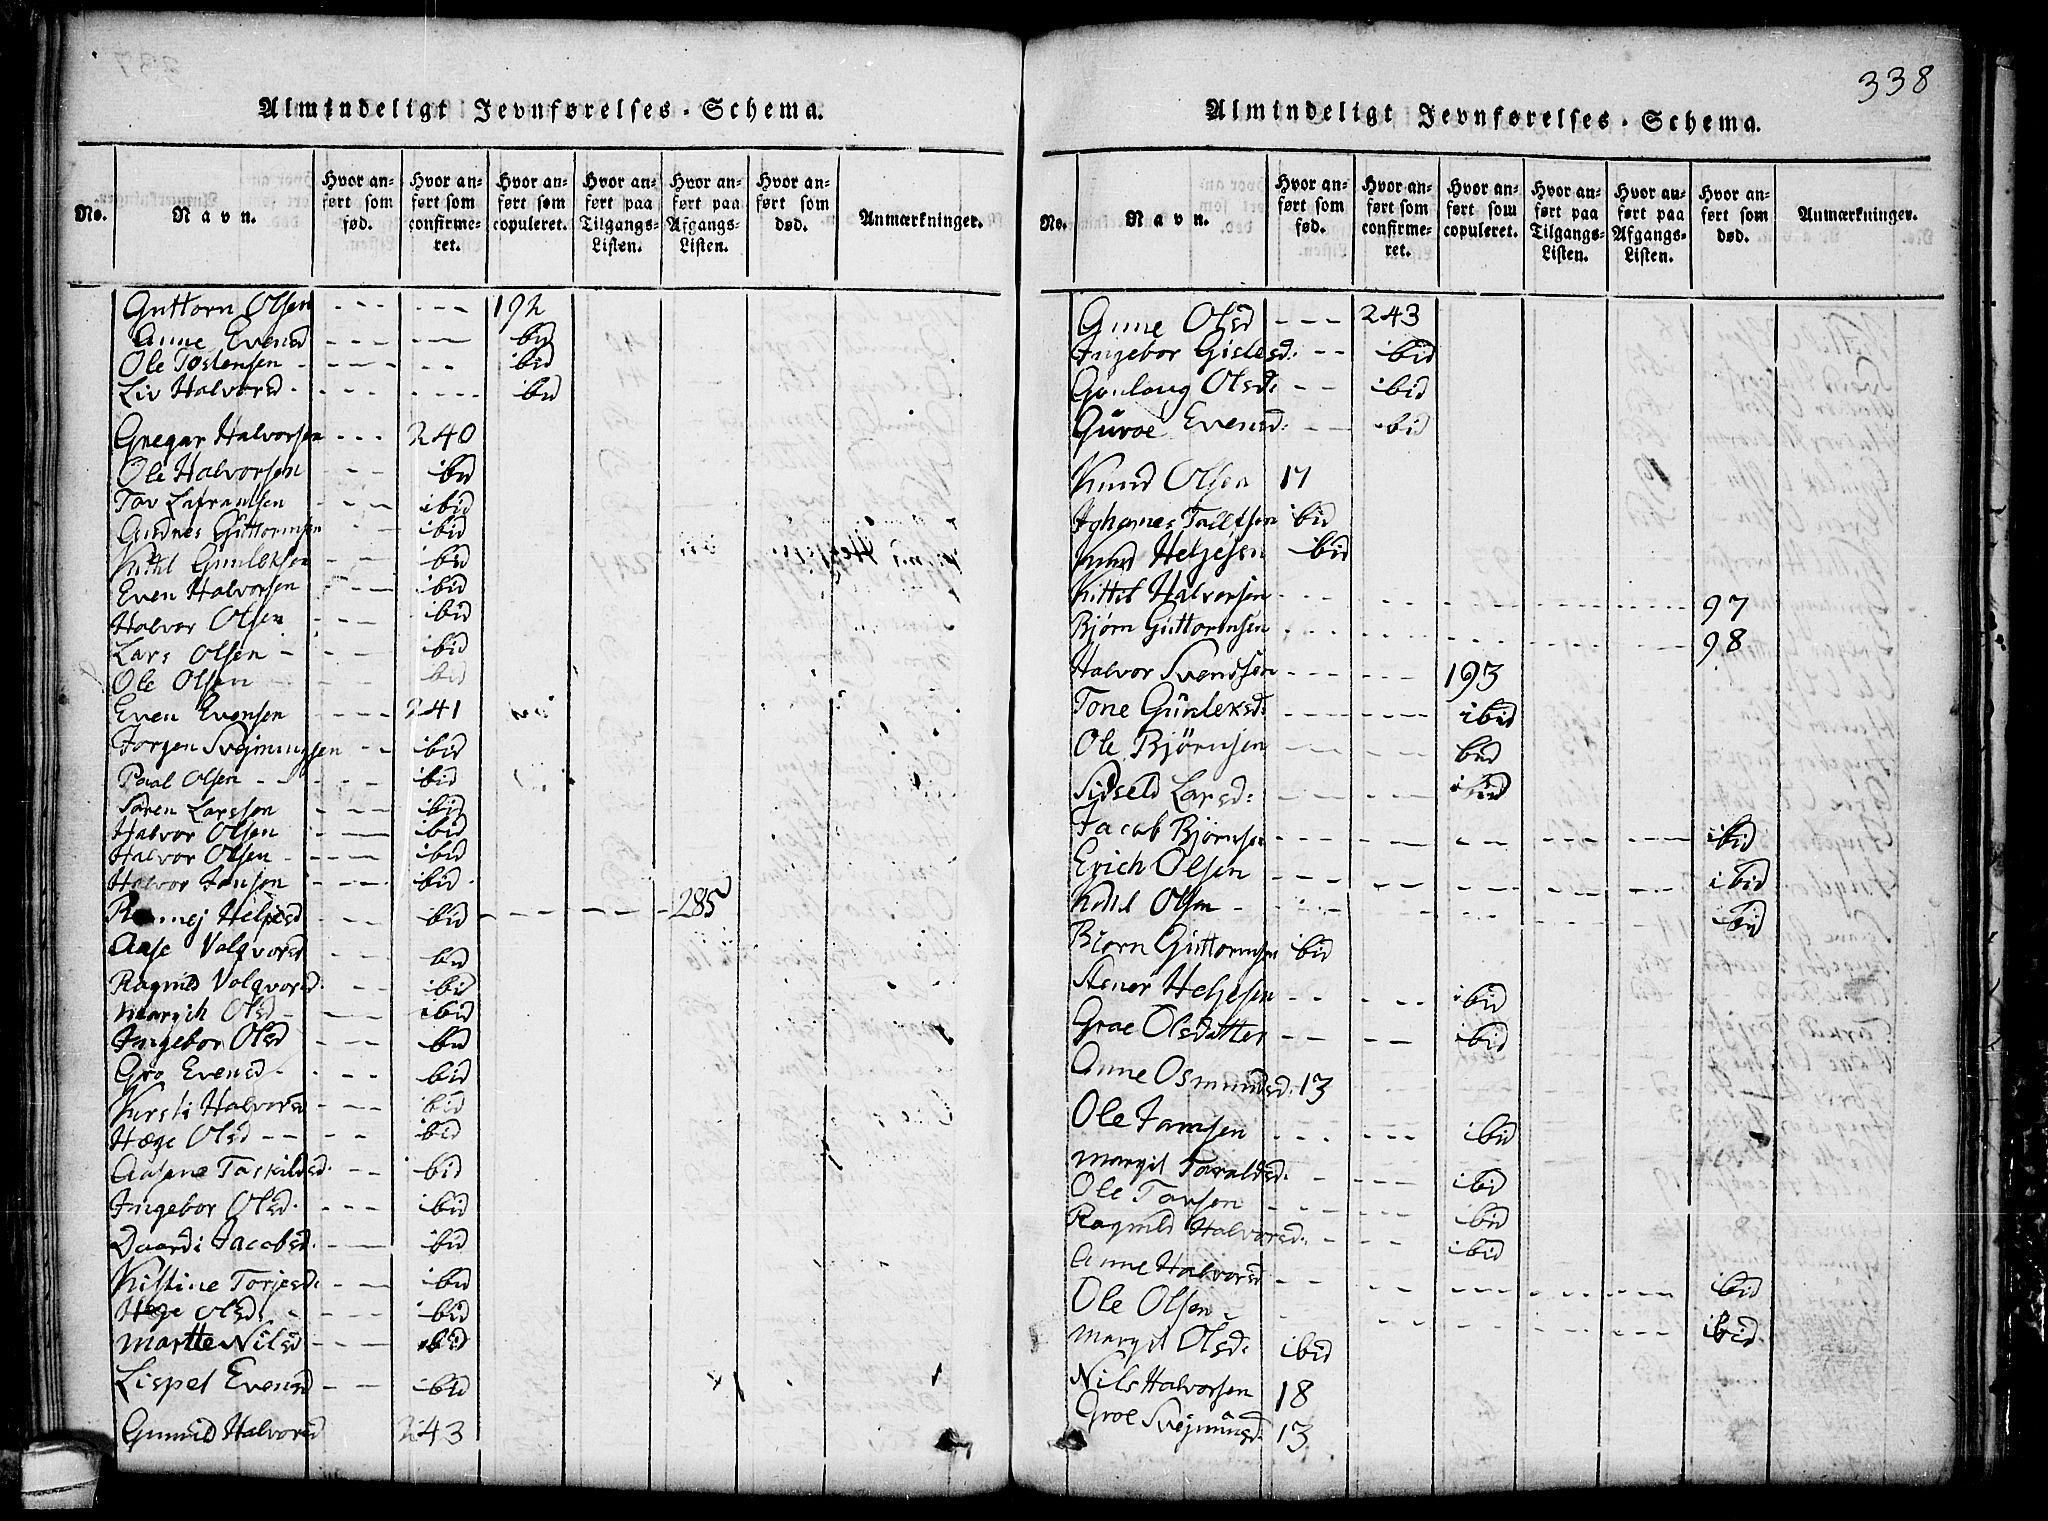 338
Almindeligt Jevnførelses-Schema.
No. Navn. Hvor anført som fød. Hvor anført som confirmeret. Hvor anført som copuleret. Hvor anført paa Tilgangs-Listen. Hvor anført paa Afgangs-Listen. Hvor anført som død. Anmærkninger.
Guttorn Olsen - - - - - - 192
Anne Evensd - - - - - - ibid
Ole Tostensen - - - - - - ibid
Liv Halvorsd - - - - - - - ibid
Gregar Halvorsen - - - 240
Ole Halvorsen - - - ibid
Tov Lafransen - - - ibid
Gudnes Güttormsen - - ibid
Kittil Gunleksen - - - ibid
Even Halvorsen - - - ibid
Halvor Olsen - - - ibid
Lars Olsen - - - - ibid
Ole Olsen - - - - ibid
Even Evensen - - - - 241
Jorgen Svejnungsen - - ibid
Paal Olsen - - - - - ibid
Søren Larssen - - - ibid
Halvor Olsen - - - ibid
Halvor Olsen - - - - ibid
Halvor Jansen - - - - ibid
Heljesd - - - ibid - - - - - 285
Aase Valqvorsd - - - ibid
Ragnild Valqvorsd. - - ibid
Margit Olsd - - - - ibid
Ingebor Olsd - - - ibid
Gro Evensd - - - - ibid
Kirsti Halvorsd - - - ibid
Hæge Olsd - - - - ibid
Aasene Taskildsd. - - ibid
Ingebor Olsd. - - - ibid
Daardi Jacobsd. - - - ibid
Kistine Torjesd. - - - ibid
Hege Olsd. - - - - ibid
Martte Nilsd - - - ibid
Lispet Evensd - - - ibid
Gunnild Halvorsd 243
Almindeligt Jevnførelses-Schema.
No. Navn. Hvor anført som fød. Hvor anført som confirmeret. Hvor anført som copuleret. Hvor anført paa Tilgangs-Listen. Hvor anført paa Afgangs-Listen. Hvor anført som død. Anmærkninger.
Anne Olsd - - - 243
Ingebor Gislesd. - - ibid
Gonlaug Olsd. - - ibid
Güroe Evensd. - - ibid
Knud Olsen 17
Tallefsen ibid
Knud Heljesen ibid
Kittil Halvorsen - - - - - - - - - - - - 97
Bjørn Güttormsen - - - - - - - - - - - - 98
Halvor Svendsen - - - - - - 193
Tone Günleksd. - - - - - - ibid
Ole Bjørnsen - - - - - - ibid
Sidseld Larsd. - - - - - - ibid
Jacob Bjørnsen - - - - - - - - - - - - ibid
Erich Olsen - - - - - - - - - - - - ibid
Kittil Olsen - - - - - - - - - - - - ibid
Biorn Güttormsen ibid
Stener Heljesen - - - - ibid
Groe Olsdatter - - - - ibid
Anne Osmundsd. 13
Ole Jamsen - - - - - - ibid
Margit Taraldsd. - - - - - ibid
Ole Tovsen - - - - - - ibid
Ragnild Halvorsd. - - - - ibid
Anne Halvorsd - - - - - - - - - - - - ibid
Ole Olsen - - - - - - - - - - - - ibid.
Margit Olsd. ibid
Nils Halvorsen 18
Groe Svejnungsd. 13